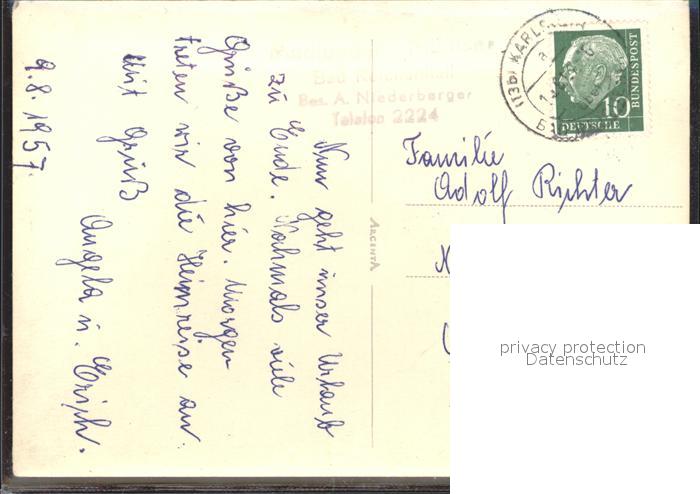 Nun geht unser Urlaub
zu Ende. Nochmals viele
Grüße von hier. Morgen
treten wir die Heimreise an.
Mit Gruß
Angela u. Erich.
9.8.1957.
Bad Reichenhall
Bes. A. Niederberger
Telefon 2224
ARGENTA
(13b) KARLSTEIN
10
DEUTSCHE
BUNDESPOST
Familie
Adolf Richter
privacy protection
Datenschutz